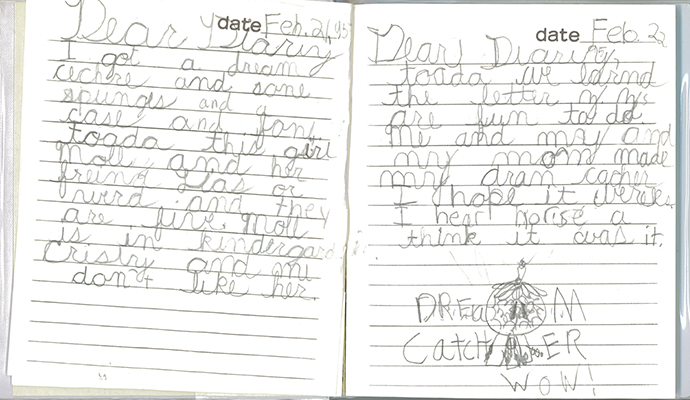 date Feb. 21, 95
Dear Diariy
I got a dream
cechre and some
spungs and a
case and
toada this girl
moll and her
freind
nurd and they
are five. moll
is in kindergard
Cristry and mi
don't like her.
date Feb. 22
Dear Diariy,
toada we larnd
the letter n n's
are fun to do.
me and my and
my mom made
my dram cacher
I hope it werks.
I hear noise a
think it was it.
DREAM
CatcHER
WOW!